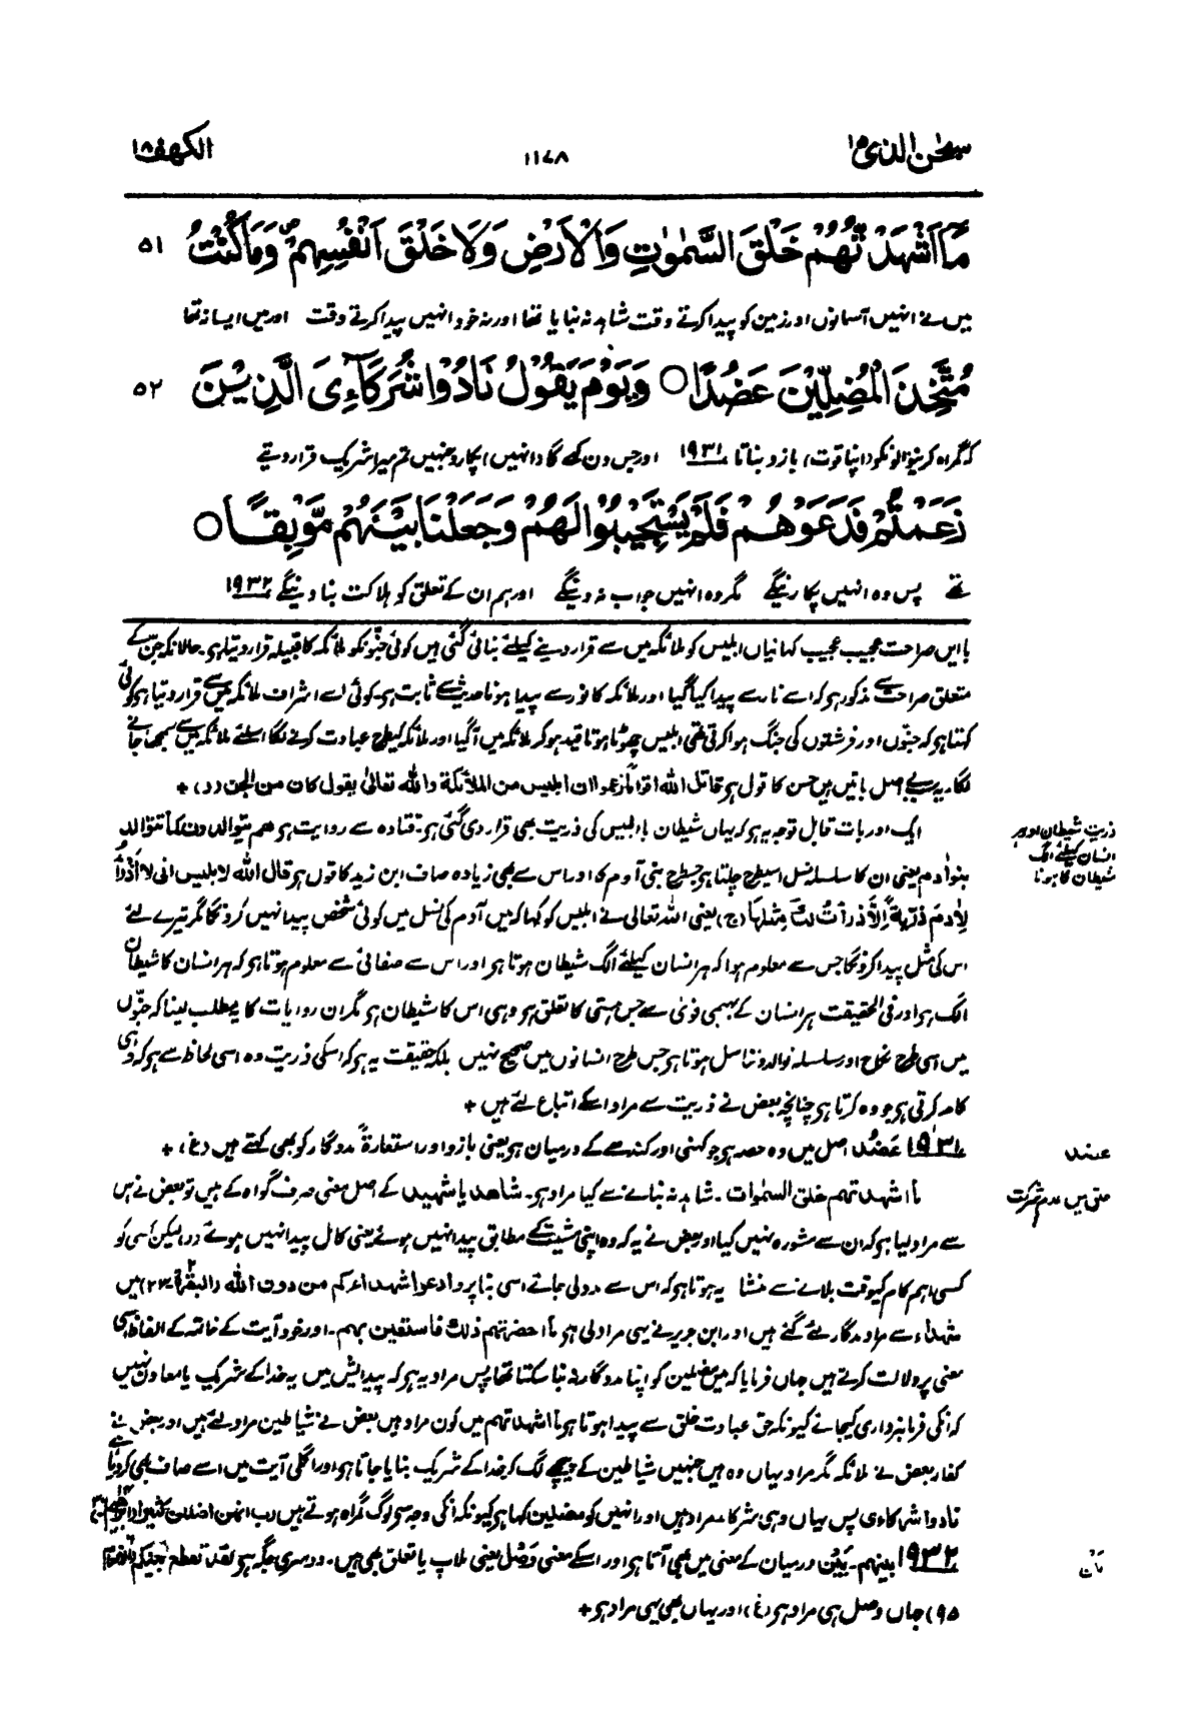 سبحٰن الذی ۱۵
۱۱۴۸
الکھف ۱۸
مَاۤ اَشْهَدْتُّهُمْ خَلْقَ السَّمٰوٰتِ وَالْاَرْضِ وَلَا خَلْقَ اَنْفُسِهِمْ ۪ وَمَا كُنْتُ ۵۱
میں نے انہیں آسمانوں اور زمین کو پیدا کرتے وقت شاہد نہ بنایا تھا اور نہ خود انہیں پیدا کرتے وقت اور میں ایسا نہ تھا
مُتَّخِذَ الْمُضِلِّيْنَ عَضُدًا ○ وَيَوْمَ يَقُوْلُ نَادُوْا شُرَكَآءِيَ الَّذِيْنَ ۵۲
کہ گمراہ کرنیوالونکو (اپنا قوت) بازو بناتا ۱۹۳۱ اور جس دن کہے گا (انہیں) پکارو جنہیں تم میرا شریک قرار دیتے
زَعَمْتُمْ فَدَعَوْهُمْ فَلَمْ يَسْتَجِيْبُوْا لَهُمْ وَجَعَلْنَا بَيْنَهُمْ مَّوْبِقًا ○
تھے پس وہ انہیں پکارینگے مگر وہ انہیں جواب نہ دینگے اور ہم ان کے تعلق کو ہلاکت بنا دینگے ۱۹۳۲
بایں صراحت عجیب عجیب کہانیاں ابلیس کو ملائکہ میں سے قرار دینے کیلئے بنائی گئی ہیں کوئی جنّوںکو ملائکہ کا قبیلہ قرار دیتا ہو۔ حالانکہ جن کے
متعلق صراحت سے مذکور ہو کہ اسے نار سے پیدا کیا گیا اور ملائکہ کا نور سے پیدا ہونا حدیث سے ثابت ہو کوئی اسے اشراف ملائکہ میں سے قرار دیتا ہو کوئی
کہتا ہو کہ جنّوں اور فرشتوں کی جنگ ہوا کرتی تھی ابلیس چھوٹا ہوتا قید ہو کر ملائکہ میں آ گیا اور ملائکہ کیطرح عبادت کرنے لگا اسلئے ملائکہ میں سے سمجھا جانے
لگا۔ یہ سب بے اصل باتیں ہیں حسن کا قول ہو قاتل الله اقواما زعموا ان ابلیس من الملائکة والله تعالٰی یقول کان من الجن (د) +
ایک اور بات قابل توجہ یہ ہو کہ یہاں شیطان یا ابلیس کی ذریت بھی قرار دی گئی ہو۔ قتادہ سے روایت ہو هم یتوالدون کما تتوالد
بنو اٰدم یعنی ان کا سلسلہ نسل اسیطرح چلتا ہو جسطرح بنی آدم کا اور اس سے بھی زیادہ صاف ابن زید کا قول ہو قال الله لابلیس انی لا اَذْرَأُ
لِاٰدمَ ذُرّیةً اِلّا ذرأتُ لکَ مِثلَها (ج) یعنی اللہ تعالٰی نے ابلیس کو کہا کہ میں آدم کی نسل میں کوئی شخص پیدا نہیں کرونگا مگر تیرے لئے
اس کی مثل پیدا کرونگا جس سے معلوم ہوا کہ ہر انسان کیلئے الگ شیطان ہوتا ہو اور اس سے صفائی سے معلوم ہوتا ہو کہ ہر انسان کا شیطان
الگ ہو اور فی الحقیقت ہر انسان کے بہیمی قویٰ سے جس ہستی کا تعلق ہو وہی اس کا شیطان ہو مگر ان روایات کا یہ مطلب لینا کہ جنّوں
میں اسی طرح نکاح اور سلسلہ توالد و تناسل ہوتا ہو جس طرح انسانوں میں صحیح نہیں بلکہ حقیقت یہ ہو کہ اسکی ذریت وہ اسی لحاظ سے ہو کہ وہی
کام کرتی ہو جو وہ کرتا ہو چنانچہ بعض نے ذریت سے مراد اسکے اتباع لئے ہیں +
ذریت شیطان اور ہر
انسان کیلئے الگ
شیطان کا ہونا
۱۹۳۱ عَضُد اصل میں وہ حصہ ہو جو کہنی اور کندھے کے درمیان ہو یعنی بازو اور استعارةً مددگار کو بھی کہتے ہیں (غ) +
عضد
ما اشهدتهم خلق السمٰوات۔ شاہد نہ بنانے سے کیا مراد ہو۔ شاهد یا شهید کے اصل معنی صرف گواہ کے ہیں تو بعض نے اس
خلق میں عدم شرکت
سے مراد لیا ہو کہ ان سے مشورہ نہیں کیا اور بعض نے یہ کہ وہ اپنی مشیت کے مطابق پیدا نہیں ہوئے یعنی کامل پیدا نہیں ہوئے (ر) لیکن کسی کو
کسی اہم کام کیوقت بلانے سے منشا یہ ہوتا ہو کہ اس سے مدد لی جائے اسی بنا پر وادعوا شهداءکم من دون الله (البقرة ۲: ۲۳) میں
شہداء سے مراد مددگار لئے گئے ہیں اور ابن جریر نے یہی مراد لی ہو ما احضرتهم ذلك فاستعین بهم۔ اور خود آیت کے خاتمہ کے الفاظ اسی
معنی پر دلالت کرتے ہیں جہاں فرمایا کہ میں مضلین کو اپنا مددگار نہ بنا سکتا تھا پس مراد یہ ہو کہ پیدائش میں یہ خدا کے شریک یا معاون نہیں
کہ انکی فرمانبرداری کیجائے کیونکہ حق عبادت خلق سے پیدا ہوتا ہو ما اشهدتهم میں کون مراد ہیں بعض نے شیاطین مراد لئے ہیں اور بعض نے
کفار بعض نے ملائکہ مگر مراد یہاں وہ ہیں جنہیں شیاطین کے پیچھے لگ کر خدا کے شریک بنایا جاتا ہو اور اگلی آیت میں اسے صاف بھی کر دیا ہے
نادوا شرکاءی پس یہاں وہی شرکاء مراد ہیں اور انہیں کو مضلین کہا ہو کیونکہ انکی وجہ سے لوگ گمراہ ہوتے ہیں رب انهن اضللن کثیرا
۱۹۳۲ بینهم۔ بَیْن درمیان کے معنی میں بھی آتا ہو اور اسکے معنی وَصْل یعنی ملاپ یا تعلق بھی ہیں۔ دوسری جگہ ہو لقد تقطع بینکم (الانعام ۶:
بَیْن
۹۵) جہاں وصل ہی مراد ہو (غ) اور یہاں بھی یہی مراد ہو +